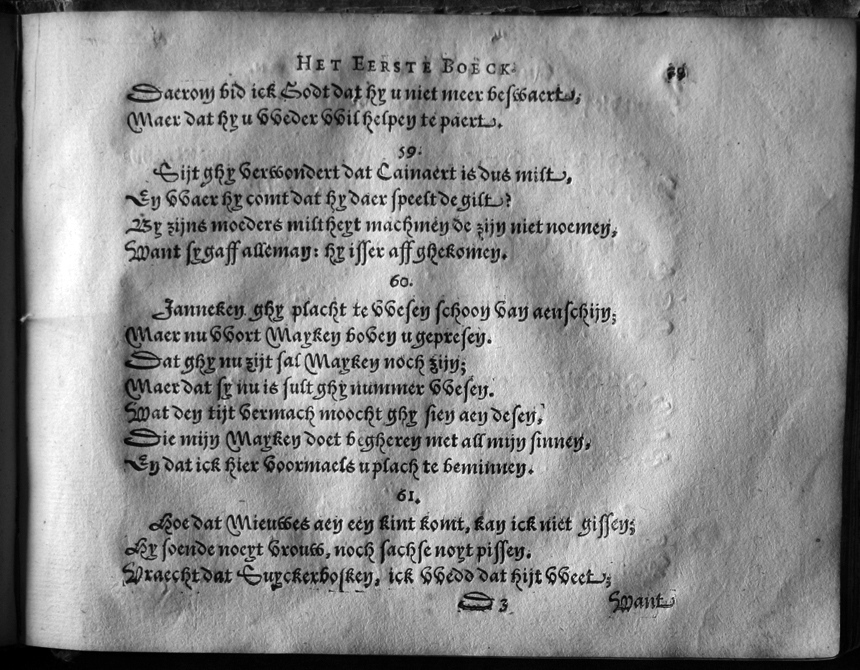 HET EERSTE BOECK.
Daerom bid ick Godt dat hy u niet meer beswaert,
Maer dat hy u weder wil helpen te paert.
59.
Sijt ghy verwondert dat Cainaert is dus milt,
En waer hy comt dat hy daer speelt de gilt?
By zijns moeders miltheyt machmen de zijn niet noemen,
Want sy gaff alleman: hy isser aff ghekomen.
60.
Janneken ghy placht te wesen schoon van aenschijn;
Maer nu wort Mayken boven u gepresen.
Dat ghy nu zijt sal Mayken noch zijn;
Maer dat sy nu is sult ghy nummer wesen.
Wat den tijt vermach moocht ghy sien aen desen,
Die mijn Mayken doet begheren met all mijn sinnen,
En dat ick hier voormaels u plach te beminnen.
61.
Hoe dat Mieuwes aen een kint komt, kan ick niet gissen;
Hy soende noeyt vrouw, noch sachse noyt pissen.
Vraecht dat Suyckerbosken, ick wedd dat hijt weet;
D 3 Want